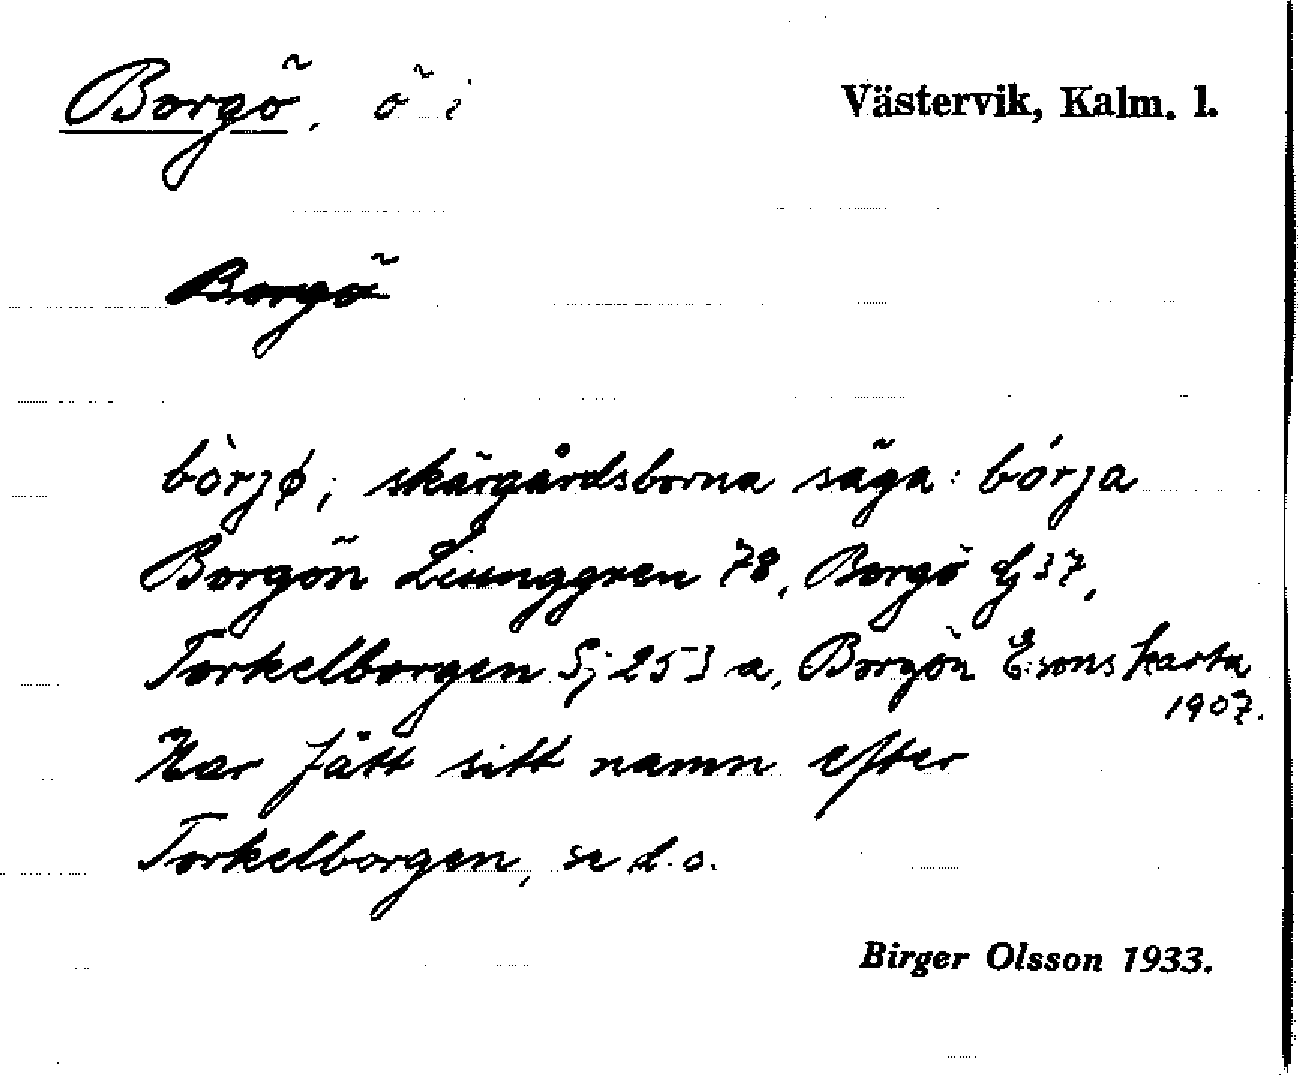 Borgö, ö i Västervik, Kalm. l.
Borgö
bòrjø, skärgårdsborna säga: bórja
Borgön Ljunggren 78, Borgö Gj 37,
Torkelborgen Sj 253 a, Borgön E:sons karta
1907.
Har fått sitt namn efter
Torkelborgen, se d.o.
Birger Olsson 1933.